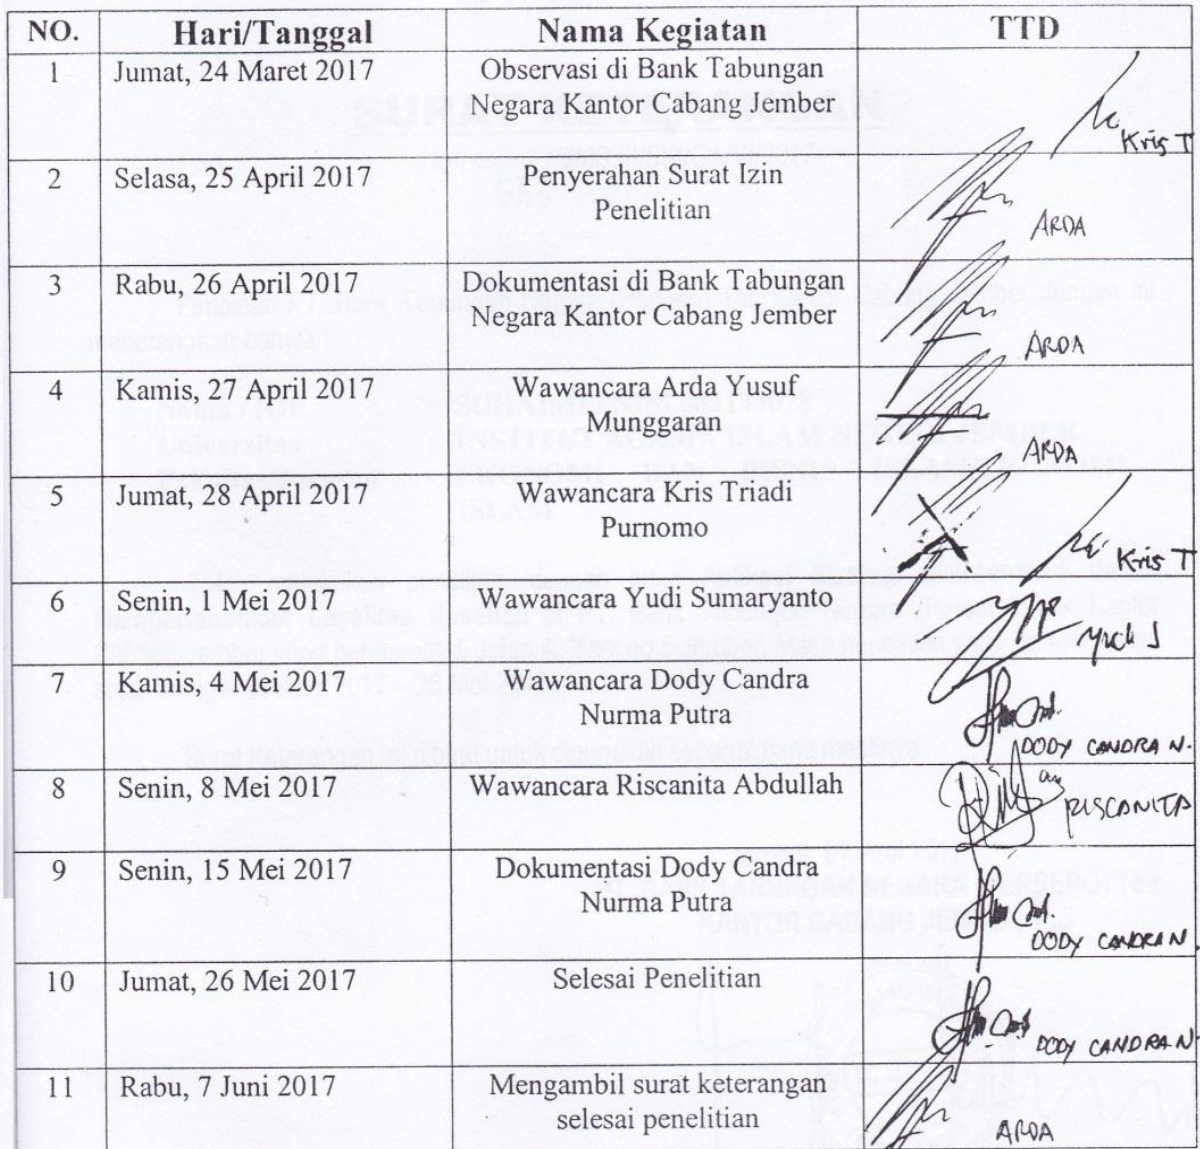 NO. Hari/Tanggal Nama Kegiatan TTD
1 Jumat, 24 Maret 2017 Observasi di Bank Tabungan
Negara Kantor Cabang Jember
Kris T
2 Selasa, 25 April 2017 Penyerahan Surat Izin
Penelitian
ARDA
3 Rabu, 26 April 2017 Dokumentasi di Bank Tabungan
Negara Kantor Cabang Jember
ARDA
4 Kamis, 27 April 2017 Wawancara Arda Yusuf
Munggaran
ARDA
5 Jumat, 28 April 2017 Wawancara Kris Triadi
Purnomo
Kris T
6 Senin, 1 Mei 2017 Wawancara Yudi Sumaryanto
7 Kamis, 4 Mei 2017 Wawancara Dody Candra
Nurma Putra
DODY CANDRA N.
8 Senin, 8 Mei 2017 Wawancara Riscanita Abdullah
RISCANITA
9 Senin, 15 Mei 2017 Dokumentasi Dody Candra
Nurma Putra
DODY CANDRA N.
10 Jumat, 26 Mei 2017 Selesai Penelitian
DODY CANDRA N.
11 Rabu, 7 Juni 2017 Mengambil surat keterangan
selesai penelitian
ARDA